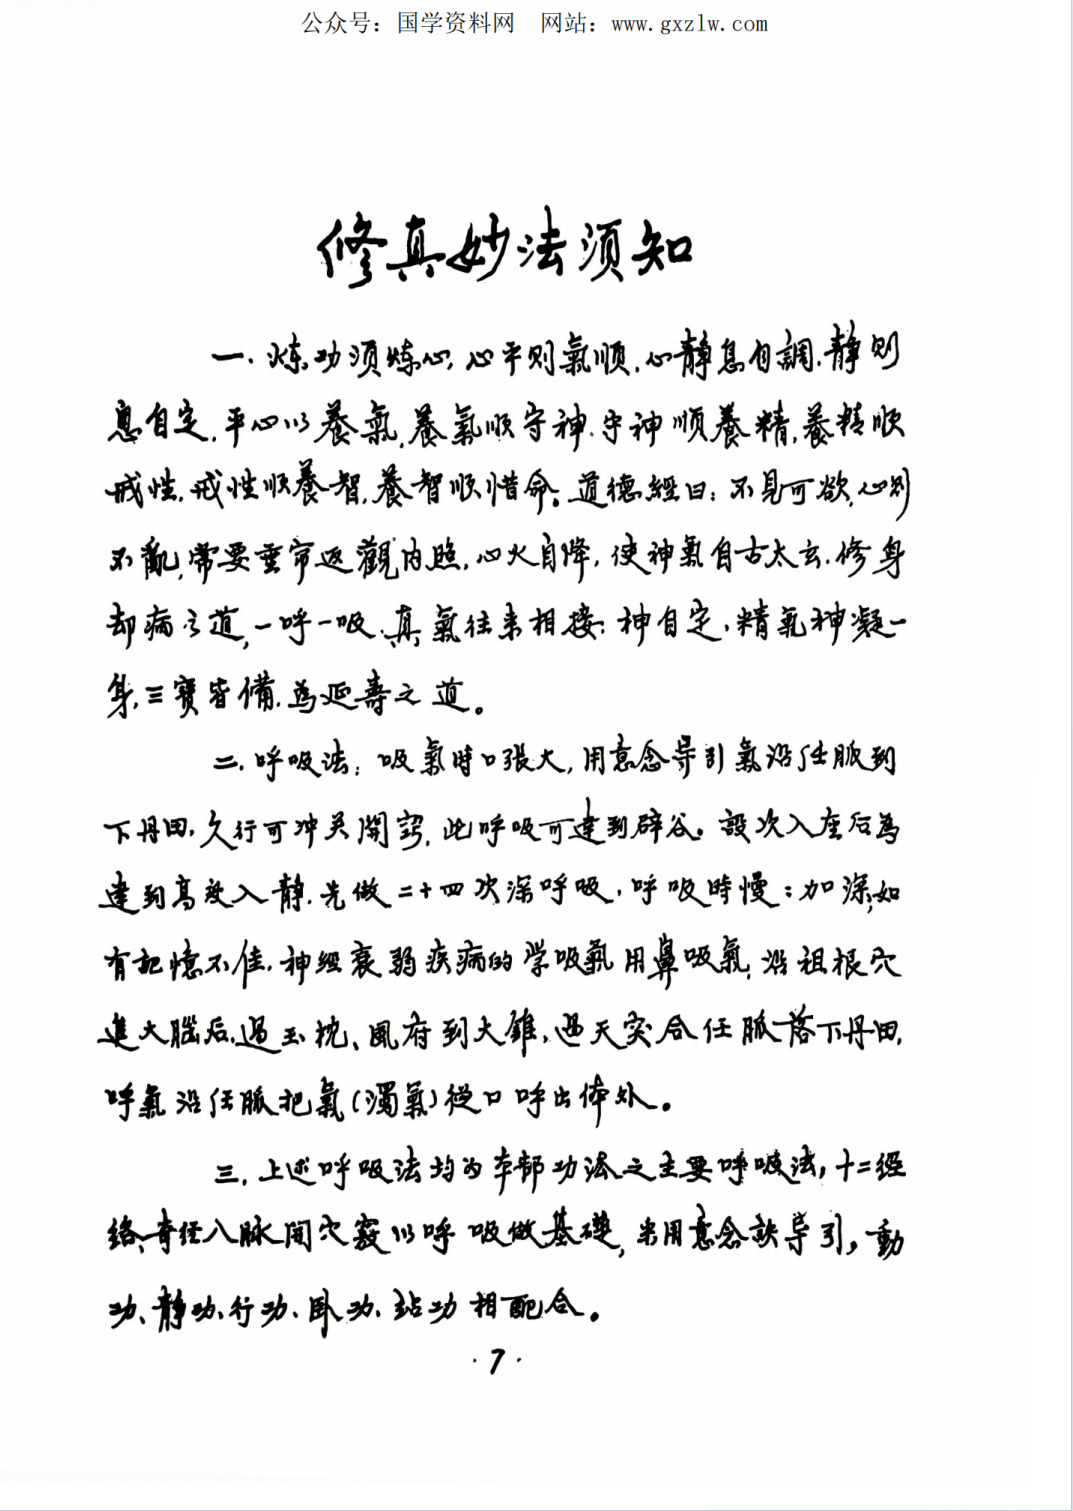 公众号：国学资料网　网站：www.gxzlw.com
修真妙法须知
一．炼功须炼心，心平则氣顺．心静息自調．静则
息自定．平心以養氣，養氣顺守神．守神顺養精，養精顺
戒性，戒性顺養智，養智顺惜命。道德經曰：不見可欲，心别
不亂，常要垂帘返觀内照，心火自降，使神氣自古太玄．修身
却病之道，一呼一吸．真氣往来相接；神自定，精氣神凝一
身，三寳皆備．為延壽之道。
二．呼吸法：吸氣時口張大，用意念导引氣沿任脈到
下丹田．久行可冲关開竅，此呼吸可達到辟谷。設次入座后為
達到高效入静．先做二十四次深呼吸，呼吸時慢；加深；如
有記憶不佳．神經衰弱疾病的学吸氣用鼻吸氣，沿祖根穴
進大腦后，過玉枕、風府到大錐，過天突合任脈落下丹田，
呼氣沿任脈把氣（濁氣）從口呼出体外。
三．上述呼吸法均为本部功法之主要呼吸法，十二經
络、奇经八脉開穴竅以呼吸做基礎，米用意念訣导引，動
功、静功、行功、卧功、站功相配合。
·7·